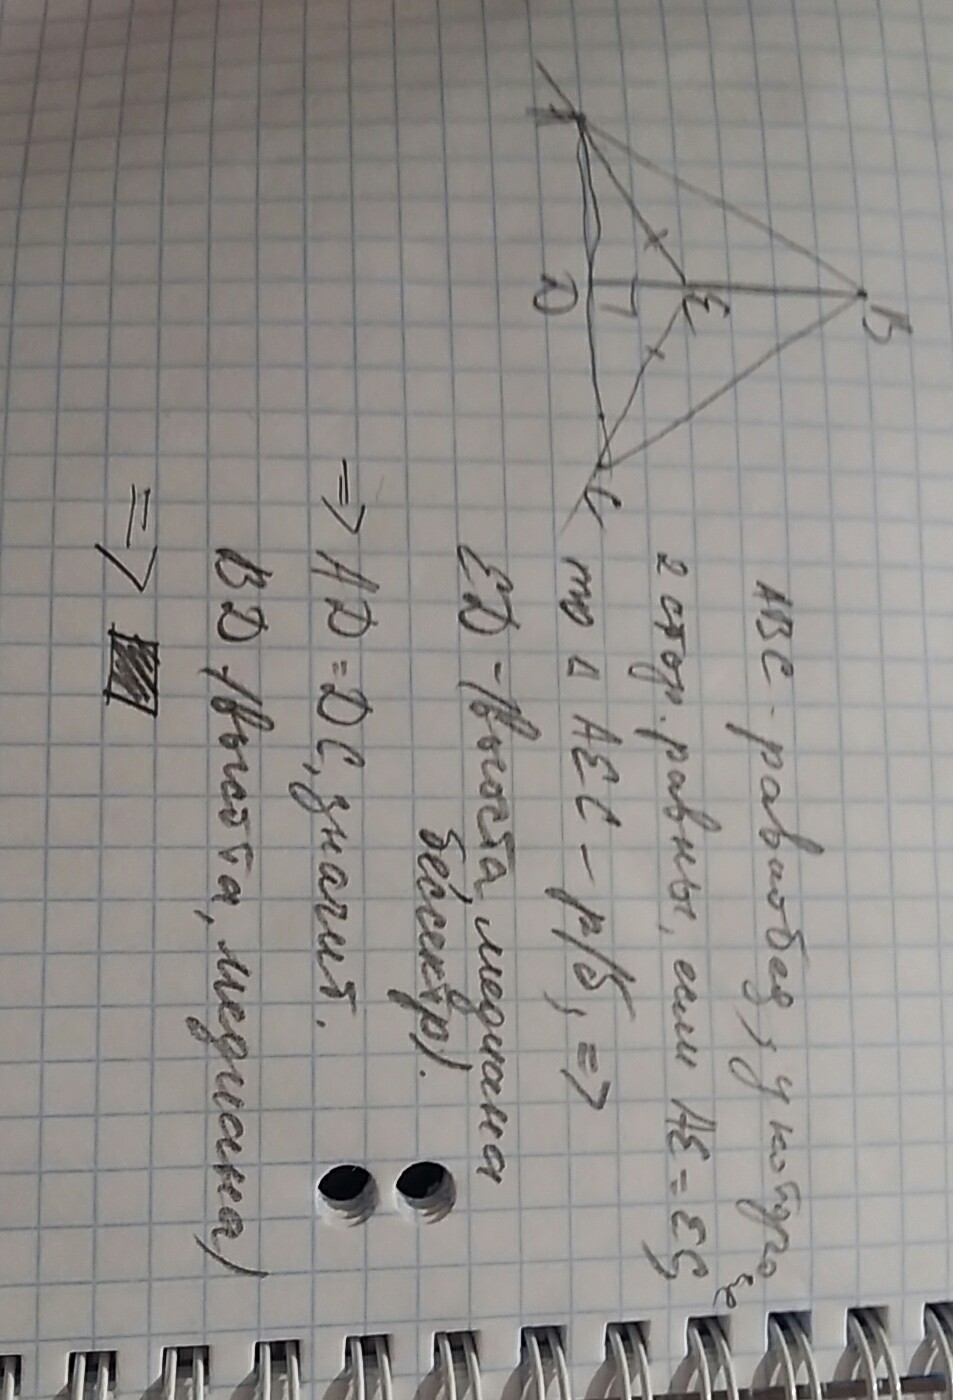 B
E
A
D
C
ABC - равнобед, у которого
2 стор. равны, если AE = EC,
то △ AEC - р/б, =>
ED - (высота, медиана
бессектр).
=> AD = DC, значит.
BD (высота, медиана)
=>